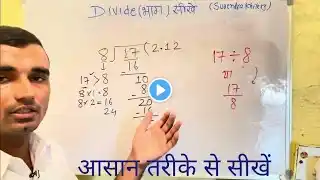 Divide (भाग) सीखे
8) 17 (2.12
16
17 > 8
10
8 × 1 = 8
8
8 × 2 = 16
20
24
16
17 ÷ 8
या
17
8
आसान तरीके से सीखें